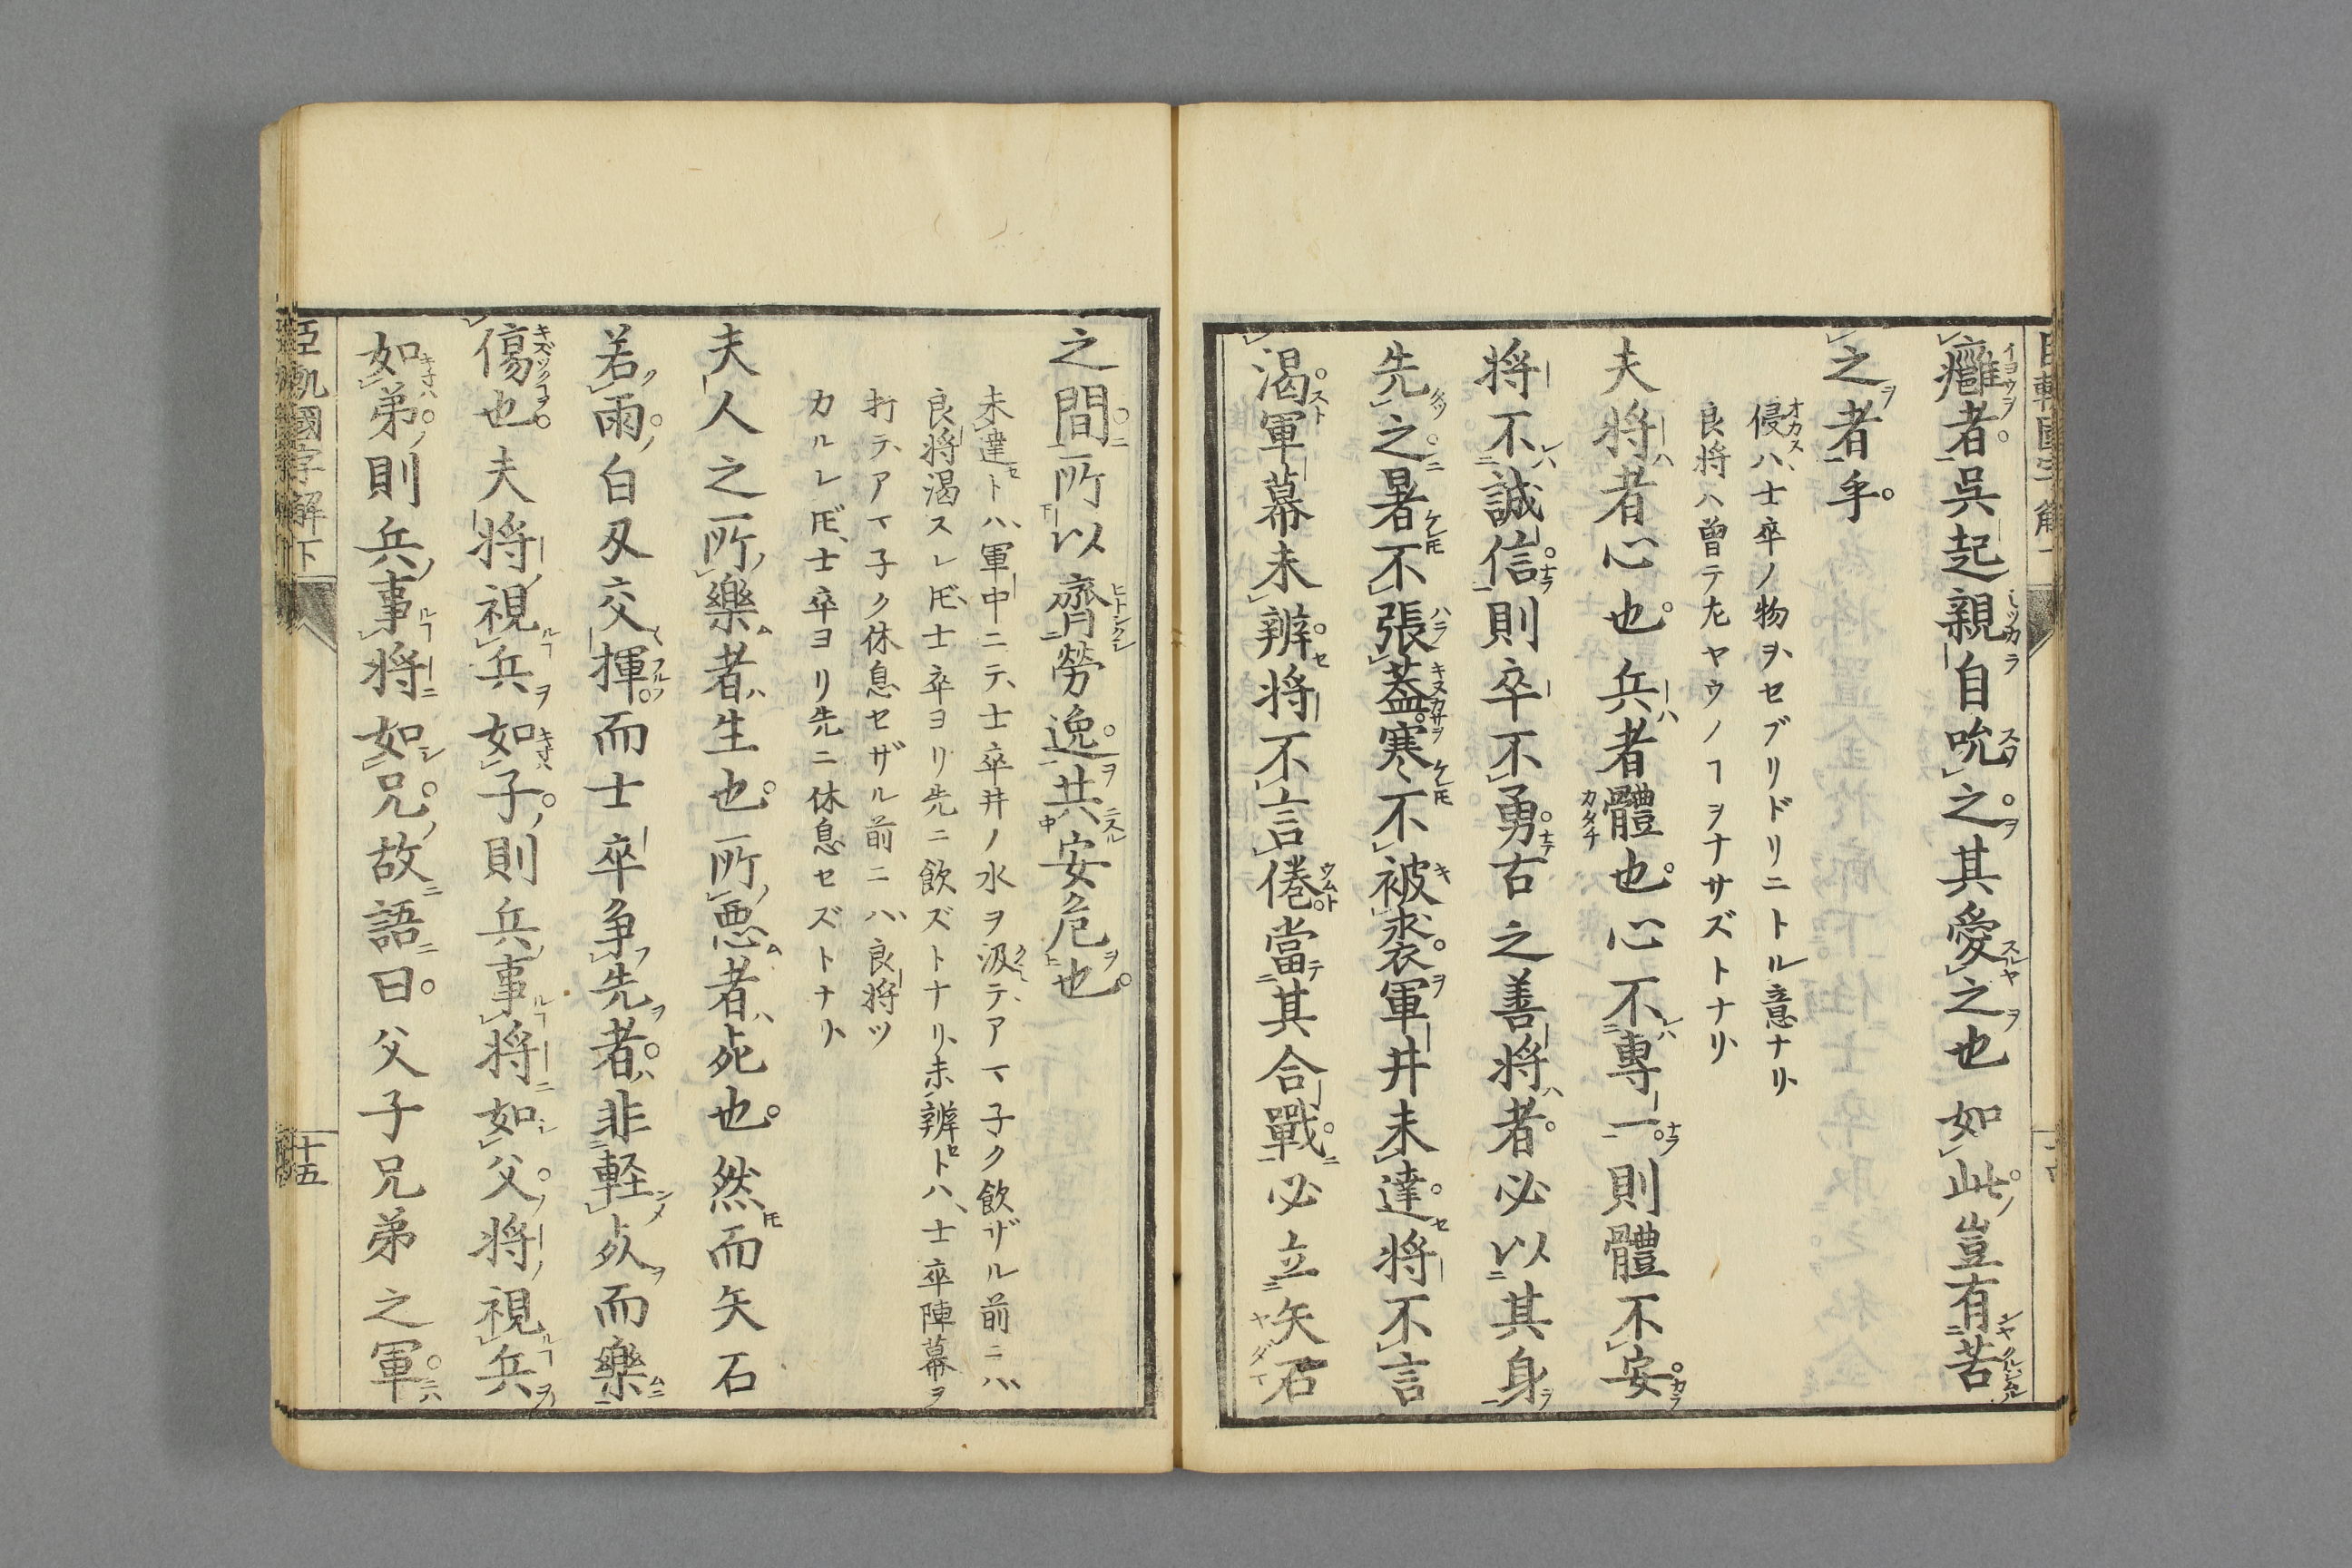 癰者。吳起親自吮之其愛之也如此豈有苦
之者乎。
侵ハ、士卒ノ物ヲ、セブリドリニトル意ナリ、
良将ハ曽テ左ヤウノヿヲナサズトナリ、
夫将者心也。兵者體也。心不專一則體不安
将不誠信則卒不勇古之善将者。必以其身
先之。暑不張蓋寒不被裘。軍井未達将不言
渇軍幕未辨将不言倦當其合戰必立矢石
之間所以齊勞逸共安危也。
未達トハ、軍中ニテ、士卒井ノ水ヲ汲テ、アマ子ク飲ザル前ニハ
良将渇スレ𪜈、士卒ヨリ先ニ飲ズトナリ、未辨トハ、士卒陣幕ヲ
打テ、アマ子ク休息セザル前ニハ、良将ツ
カルレ𪜈、士卒ヨリ先ニ休息セズトナリ、
夫人之所樂者生也。所悪者死也。然而矢石
若雨白刄交揮而士卒争先者。非軽死而樂
傷也。夫将視兵如子則兵事将如父将視兵
如弟則兵事将如兄故語曰。父子兄弟之軍
臣軌國字解下
十五